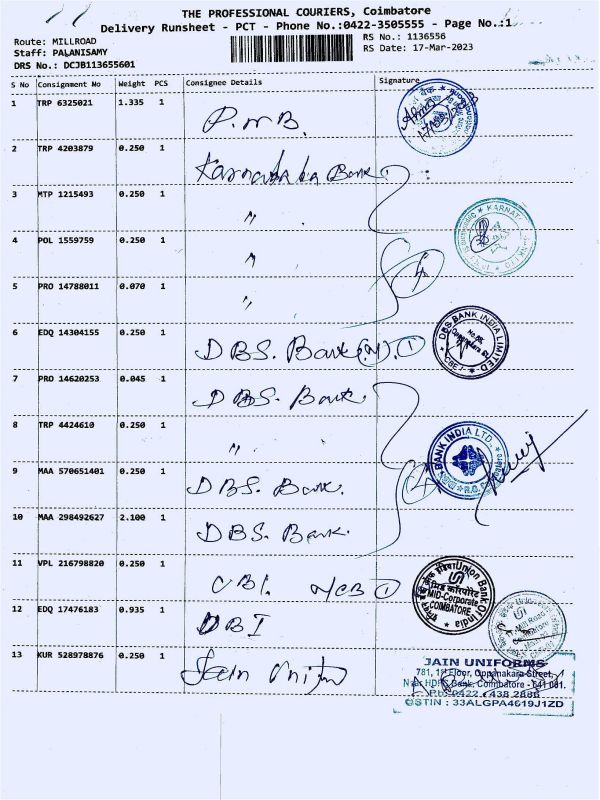 THE PROFESSIONAL COURIERS, Coimbatore
Delivery Runsheet - PCT - Phone No.:0422-3505555 - Page No.:1
Route: MILLROAD
Staff: PALANISAMY
DRS No.: DCJB113655601
RS No.: 1136556
RS Date: 17-Mar-2023
S No Consignment No Weight PCS Consignee Details Signature
1 TRP 6325021 1.335 1 P.N.B.
2 TRP 4203879 0.250 1 Karnataka Bank 1
3 MTP 1215493 0.250 1 "
4 POL 1559759 0.250 1 " 4
5 PRO 14788011 0.070 1 "
6 EDQ 14304155 0.250 1 DBS. Bank (M). 1
7 PRO 14620253 0.045 1 DBS. Bank
8 TRP 4424610 0.250 1 "
9 MAA 570651401 0.250 1 DBS. Bank. 4
10 MAA 298492627 2.100 1 DBS. Bank.
11 VPL 216798820 0.250 1 UBI. MCB 1
12 EDQ 17476183 0.935 1 DBI
13 KUR 528978876 0.250 1 Jain
KARNAT BANK LTD
DBS BANK INDIA LIMITED
CBE
BANK INDIA LTD.
Union Bank Of India
MID-Corporate
COIMBATORE
Mill Road
JAIN UNIFORMS
781, 1st Floor, Oppanakara Street,
Near HDFC Bank, Coimbatore - 641 001.
Ph: 0422 - 438 2888
GSTIN : 33ALGPA4619J1ZD